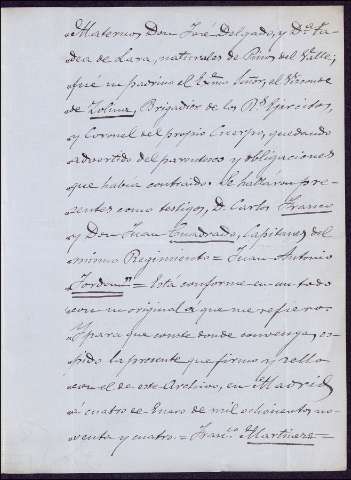 Maternos, Don José Delgado, y Dª Ta-
dea de Lara, naturales de Pinos del Valle;
fué su padrino el Exmo Señor, el Vizconde
de Zolina, Brigadier de los Rs Ejércitos,
y Coronel del propio Cuerpo, quedando
advertido del parentesco y obligaciones
que había contraido. Se hallaron pre-
sentes como testigos, D. Carlos Franco
y Don Juan Cuadrado, Capitanes del
mismo Regimiento = Juan Antonio
Jordan = Está conforme en un todo
con su original a que me refiero.
Y para que conste donde convenga, es-
pido la presente que firmo y sello
con el de este Archivo, en Madrid
á cuatro de Enero de mil ochocientos no-
venta y cuatro = Franco Martinez =